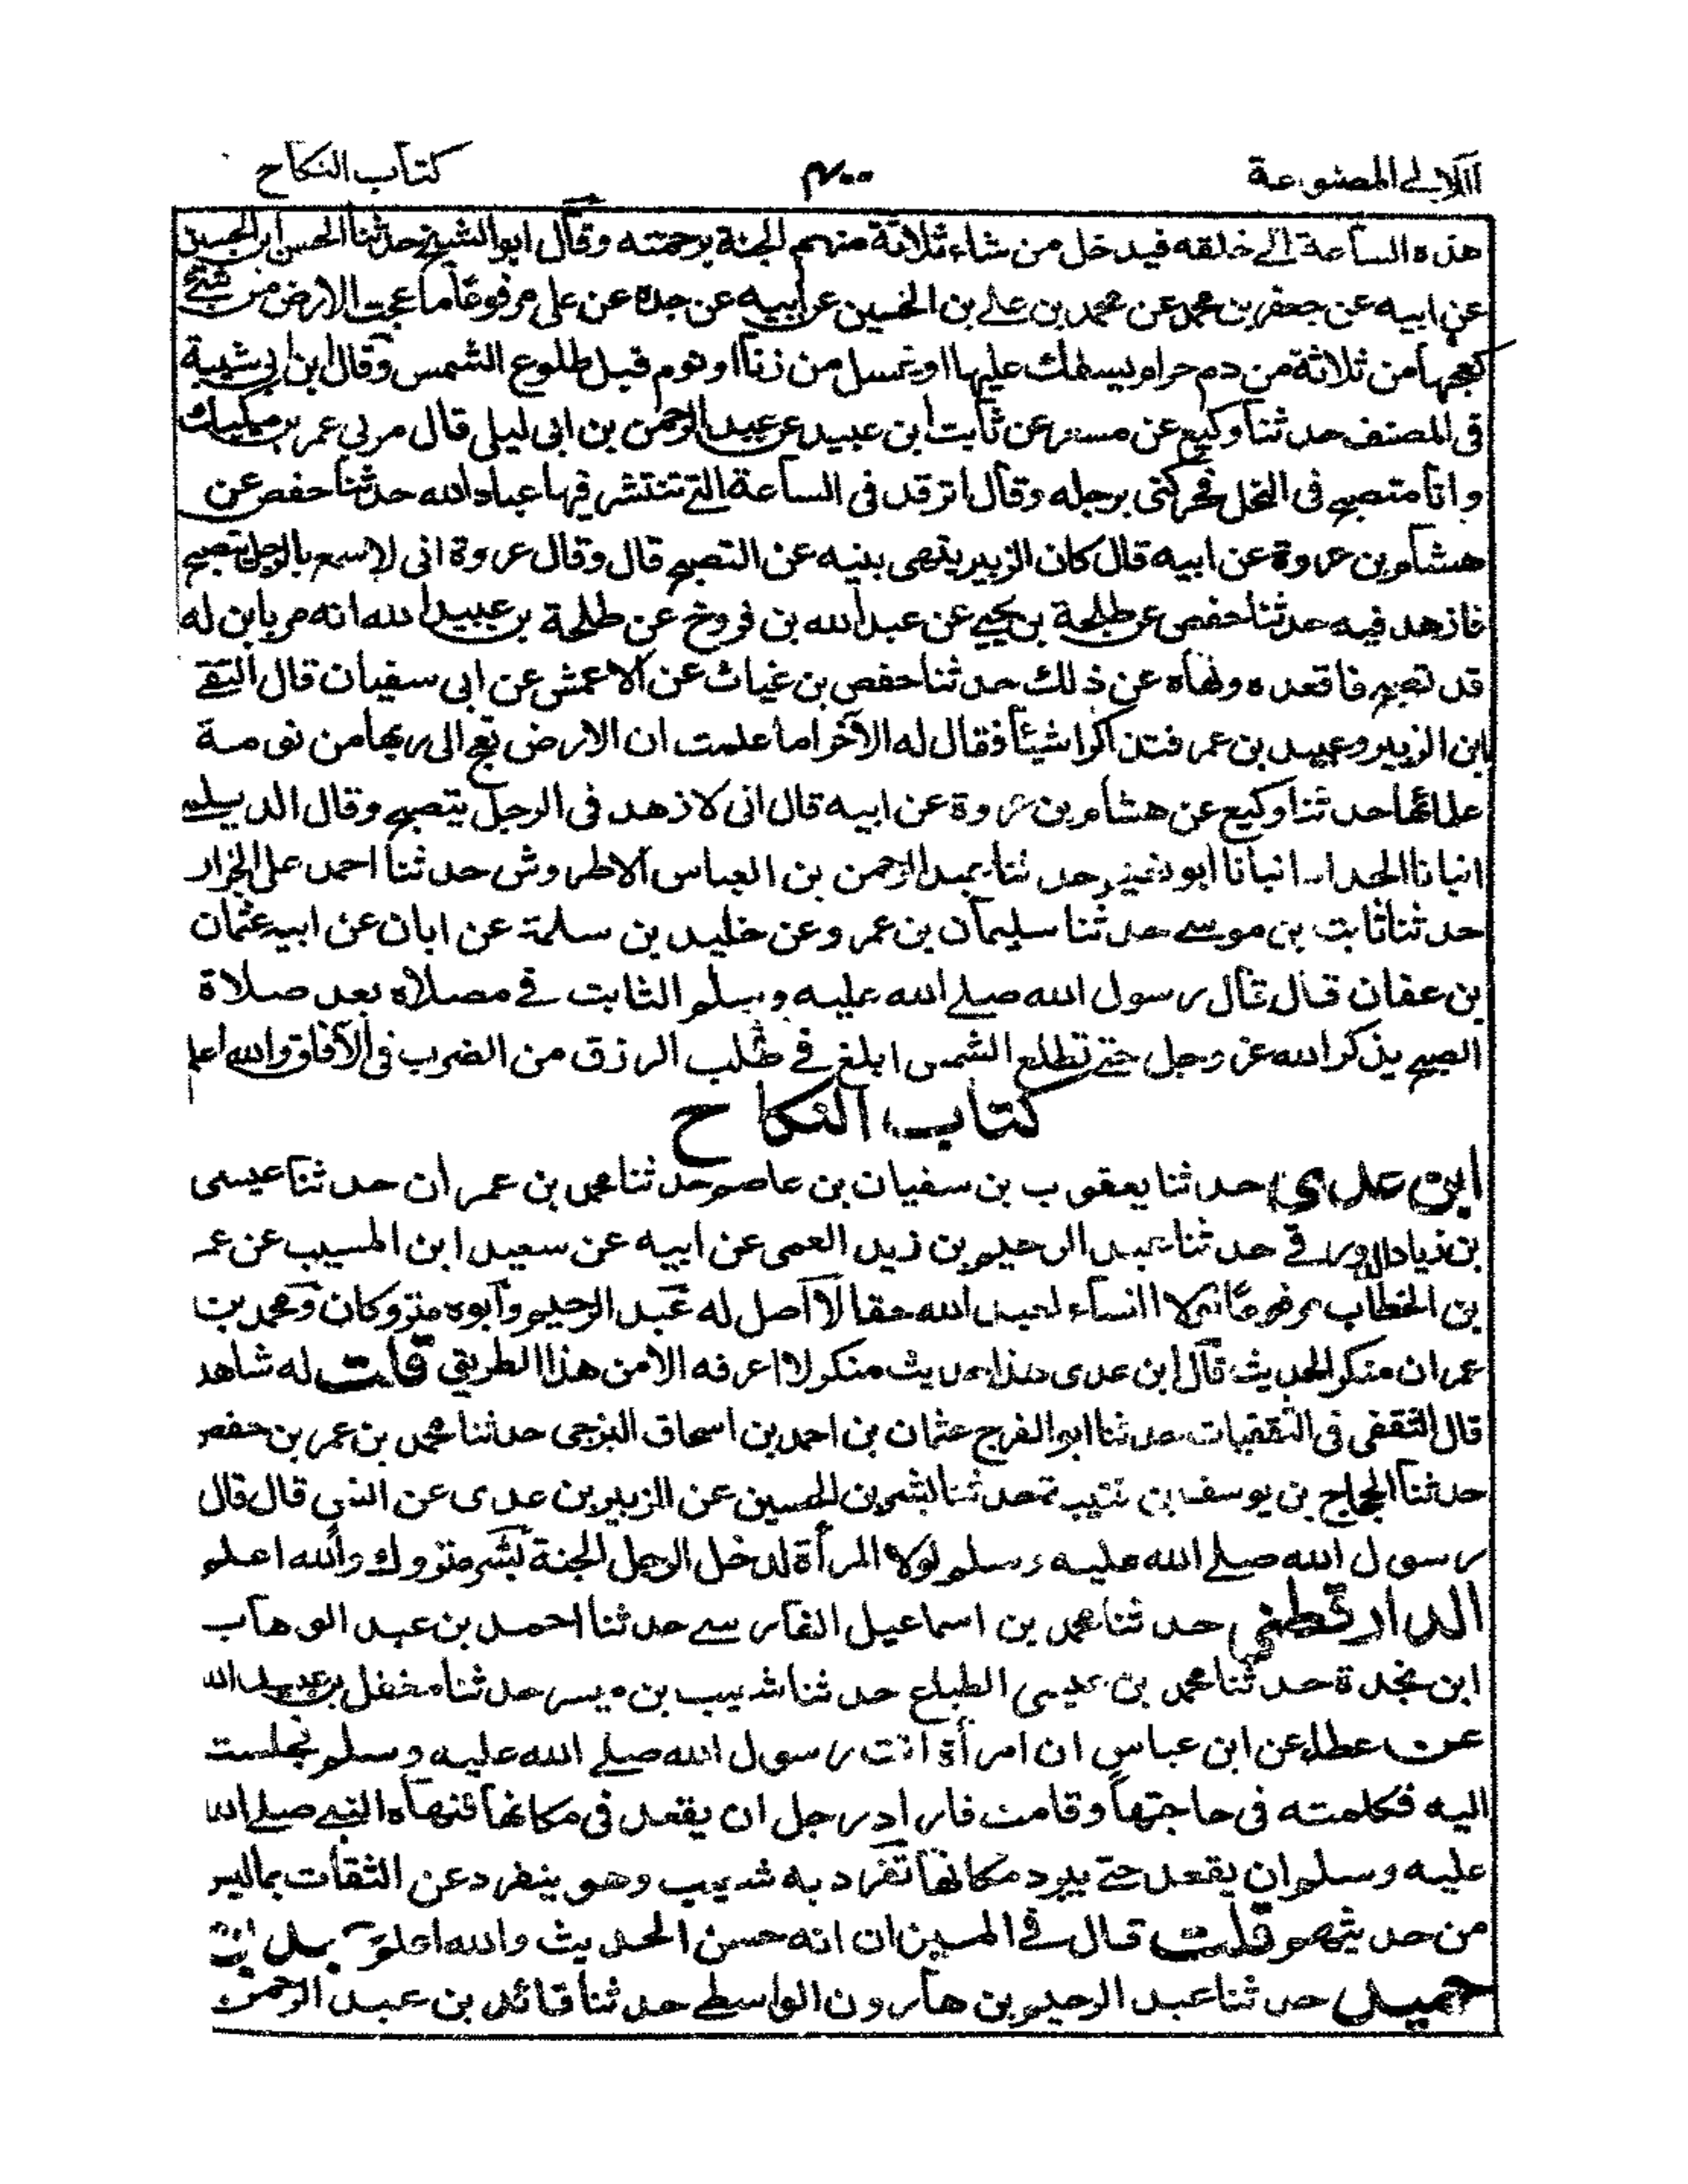 اللالي المصنوعة ٣٠٠ كتاب النكاح
هذه الساعة الى خلقه فيدخل من شاء ثلاثة منهم الجنة برحمته وقال ابوالشيخ حدثنا الحسن ابن الحسين
عن ابيه عن جعفر بن محمد عن محمد بن علي بن الحسين عن ابيه عن جده عن علي مرفوعا ما عجت الارض من شئ
كعجها من ثلاثة من دم حرام يسفك عليها او غسل من زنا او نوم قبل طلوع الشمس وقال ابن ابي شيبة
في المصنف حدثنا وكيع عن مسعر عن ثابت ابن عبيد عن عبد الرحمن بن ابي ليلى قال مر بي عمر بن
وانا متصبح في النخل فحركني برجله وقال اترقد في الساعة التي تنتشر فيها عباد الله حدثنا حفص عن
هشام بن عروة عن ابيه قال كان الزبير ينهى بنيه عن التصبح قال وقال عروة اني لاسمع بالرجل يتصبح
فازهد فيه حدثنا حفص عن طلحة بن يحيى عن عبد الله بن فروخ عن طلحة بن عبيد الله انه مر بابن له
قد تصبح فاقعده ونهاه عن ذلك حدثنا حفص بن غياث عن الاعمش عن ابي سفيان قال التقى
ابن الزبير وعبيد بن عمر فتذاكرا شيئا فقال له الآخر اما علمت ان الارض تعج الى ربها من نومة
علمائها حدثنا وكيع عن هشام بن عروة عن ابيه قال اني لازهد في الرجل يتصبح وقال الديلمي
انبانا الحداد انبانا ابو نعيم حدثنا عبد الرحمن بن العباس الاطروش حدثنا احمد علي الخزار
حدثنا ثابت بن موسى حدثنا سليمان بن عمرو عن خليد بن سلمة عن ابان عن ابيه عثمان
بن عفان قال قال رسول الله صلى الله عليه وسلم الثابت في مصلاه بعد صلاة
الصبح يذكر الله عز وجل حتى تطلع الشمس ابلغ في طلب الرزق من الضرب في الآفاق والله اعلم
كتاب النكاح
ابن عدي حدثنا يعقوب بن سفيان بن عاصم حدثنا محمد بن عمران حدثنا عيسى
بن زياد الدورقي حدثنا عبد الرحيم بن زيد العمى عن ابيه عن سعيد ابن المسيب عن عمر
بن الخطاب مرفوعا لولا النساء لعبد الله حقا لا اصل له عبد الرحيم وابوه متروكان ومحمد بن
عمران منكر الحديث قال ابن عدي هذا حديث منكر لا اعرفه الا من هذا الطريق قلت له شاهد
قال الثقفي في الثقفيات حدثنا ابو الفرج عثمان بن احمد بن اسحاق البرجي حدثنا محمد بن عمر بن حفص
حدثنا الحجاج بن يوسف بن قتيبة حدثنا بشر بن الحسين عن الزبير بن عدي عن النبي قال قال
رسول الله صلى الله عليه وسلم لولا المرأة لدخل الرجل الجنة بشر متروك والله اعلم
الدارقطني حدثنا محمد بن اسماعيل الفارسي حدثنا احمد بن عبد الوهاب
ابن نجدة حدثنا محمد بن عيسى الطباع حدثنا شعيب بن مبسر حدثنا مغفل بن عبيد الله
عن عطاء عن ابن عباس ان امرأة اتت رسول الله صلى الله عليه وسلم فجلست
اليه فكلمته في حاجتها وقامت فاراد رجل ان يقعد في مكانها فنهاه النبي صلى الله
عليه وسلم ان يقعد حتى يبرد مكانها تفرد به شعيب وهو ينفرد عن الثقات بما ليس
من حديثهم قلت قال في الميزان انه حسن الحديث والله اعلم بدل بن
حميد حدثنا عبد الرحيم بن هارون الواسطي حدثنا قائد بن عبد الرحمن